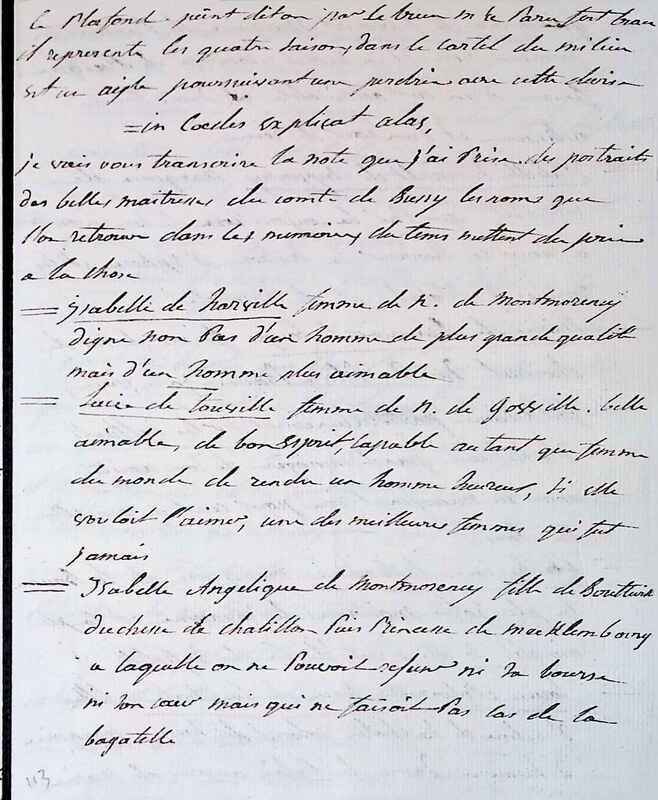 Ce Plafond peint dit on par Le brun m de Paru fort beau
il represente les quatre saisons, dans le cartel du milieu
est un aigle poursuivant une perdrix avec cette devise
= in Coedes explicat alas,
je vais vous transcrire la note que j'ai Prise des portraits
des belles maitresses du comte de Bussy les noms que
l'on retrouve dans les memoires du tems mettent du prix
a la chose
= ysabelle de harville femme de n. de Montmorency
digne non Pas d'un homme de plus grande qualité
mais d'un homme plus aimable
= Lucie de tourville femme de n. de gosville. belle
aimable, de bon esprit, capable autant que femme
du monde de rendre un homme heureux, si elle
vouloit l'aimer, une des meilleures femmes qui fut
jamais
= Isabelle Angelique de Montmorency fille de Boutteville
duchesse de chatillon Puis Princesse de mecklembourg
a laquelle on ne Pouvoit refuser ni sa bourse
ni son cœur mais qui ne faisoit Pas cas de la
bagatelle
113